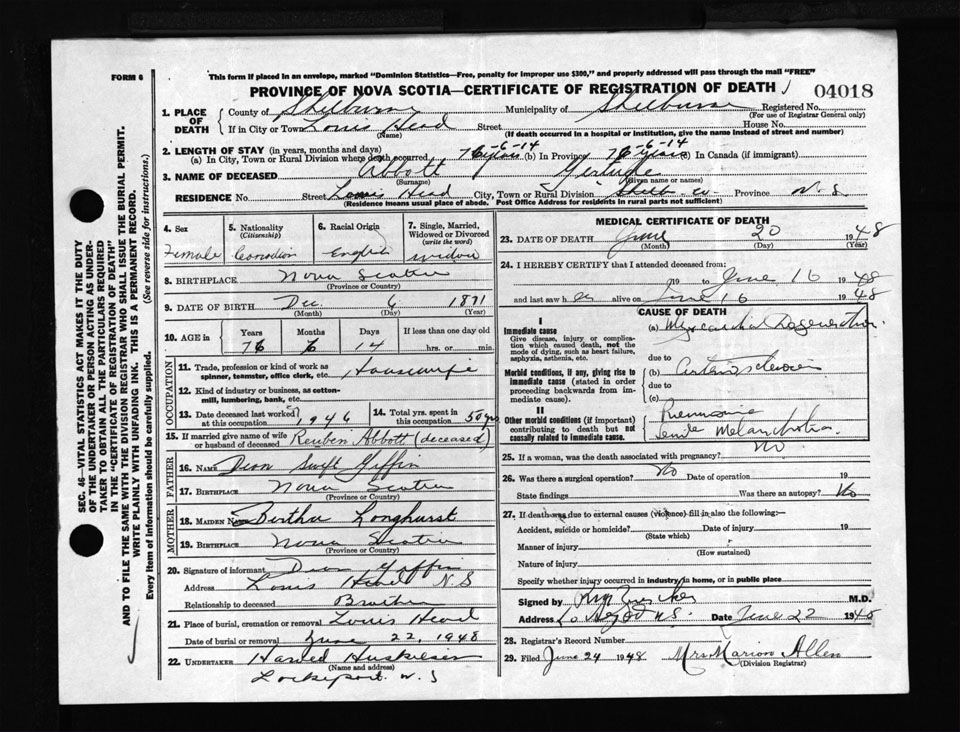 FORM 6
This form if placed in an envelope, marked "Dominion Statistics—Free, penalty for improper use $300," and properly addressed will pass through the mail "FREE"
PROVINCE OF NOVA SCOTIA—CERTIFICATE OF REGISTRATION OF DEATH
04018
1. PLACE OF DEATH
County of Shelburne Municipality of Shelburne Registered No.
(For use of Registrar General only)
If in City or Town Louis Head Street House No.
(Name) (If death occurred in a hospital or institution, give the name instead of street and number)
2. LENGTH OF STAY (in years, months and days)
(a) In City, Town or Rural Division where death occurred 76-6-14 years (b) In Province 76-6-14 years (c) In Canada (if immigrant)
3. NAME OF DECEASED Abbott Gertrude
(Surname) (Given name or names)
RESIDENCE No. Street Louis Head City, Town or Rural Division Shelb. Co. Province N.S
(Residence means usual place of abode. Post Office Address for residents in rural parts not sufficient)
4. Sex Female
5. Nationality (Citizenship) Canadian
6. Racial Origin English
7. Single, Married, Widowed or Divorced (write the word) Widow
8. BIRTHPLACE Nova Scotia
(Province or Country)
9. DATE OF BIRTH Dec. 6 1871
(Month) (Day) (Year)
10. AGE in Years Months Days If less than one day
76 6 14 hrs. or min.
OCCUPATION
11. Trade, profession or kind of work as spinner, teamster, office clerk, etc. Housewife
12. Kind of industry or business, as cotton-mill, lumbering, bank, etc.
13. Date deceased last worked at this occupation 1946
14. Total yrs. spent in this occupation 50 yrs
15. If married give name of wife or husband of deceased Reuben Abbott (deceased)
FATHER
16. NAME Dean Swift Giffin
17. BIRTHPLACE Nova Scotia
(Province or Country)
MOTHER
18. MAIDEN NAME Bertha Longhurst
19. BIRTHPLACE Nova Scotia
(Province or Country)
20. Signature of informant Dean Giffin
Address Louis Head N S
Relationship to deceased Brother
21. Place of burial, cremation or removal Louis Head
Date of burial or removal June 22, 1948
22. UNDERTAKER Harold Huskilson
(Name and address)
Lockeport N. S
MEDICAL CERTIFICATE OF DEATH
23. DATE OF DEATH June 20 1948
(Month) (Day) (Year)
24. I HEREBY CERTIFY that I attended deceased from:
19 to June 16 1948
and last saw her alive on June 16 1948
CAUSE OF DEATH
I
Immediate cause
Give disease, injury or complication which caused death, not the mode of dying, such as heart failure, asphyxia, asthenia, etc.
(a) Myocardial Degeneration
due to
Morbid conditions, if any, giving rise to immediate cause (stated in order proceeding backwards from immediate cause).
(b) Arteriosclerosis
due to
(c)
II
Other morbid conditions (if important) contributing to death but not causally related to immediate cause.
Pneumonia
Senile Melancholia
25. If a woman, was the death associated with pregnancy? No
26. Was there a surgical operation? No Date of operation 19
State findings Was there an autopsy? No
27. If death was due to external causes (violence) fill in also the following:—
Accident, suicide or homicide? Date of injury 19
(State which)
Manner of injury
(How sustained)
Nature of injury
Specify whether injury occurred in industry, in home, or in public place
Signed by M.D.
Address Date June 22 1948
28. Registrar's Record Number
29. Filed June 24 1948 Mrs Marion Allen
(Division Registrar)
SEC. 46—VITAL STATISTICS ACT MAKES IT THE DUTY
OF THE UNDERTAKER OR PERSON ACTING AS UNDER-
TAKER TO OBTAIN ALL THE PARTICULARS REQUIRED
IN THE "CERTIFICATE OF REGISTRATION OF DEATH"
AND TO FILE THE SAME WITH THE DIVISION REGISTRAR WHO SHALL ISSUE THE BURIAL PERMIT.
WRITE PLAINLY WITH UNFADING INK. THIS IS A PERMANENT RECORD.
Every item of information should be carefully supplied. (See reverse side for instructions.)